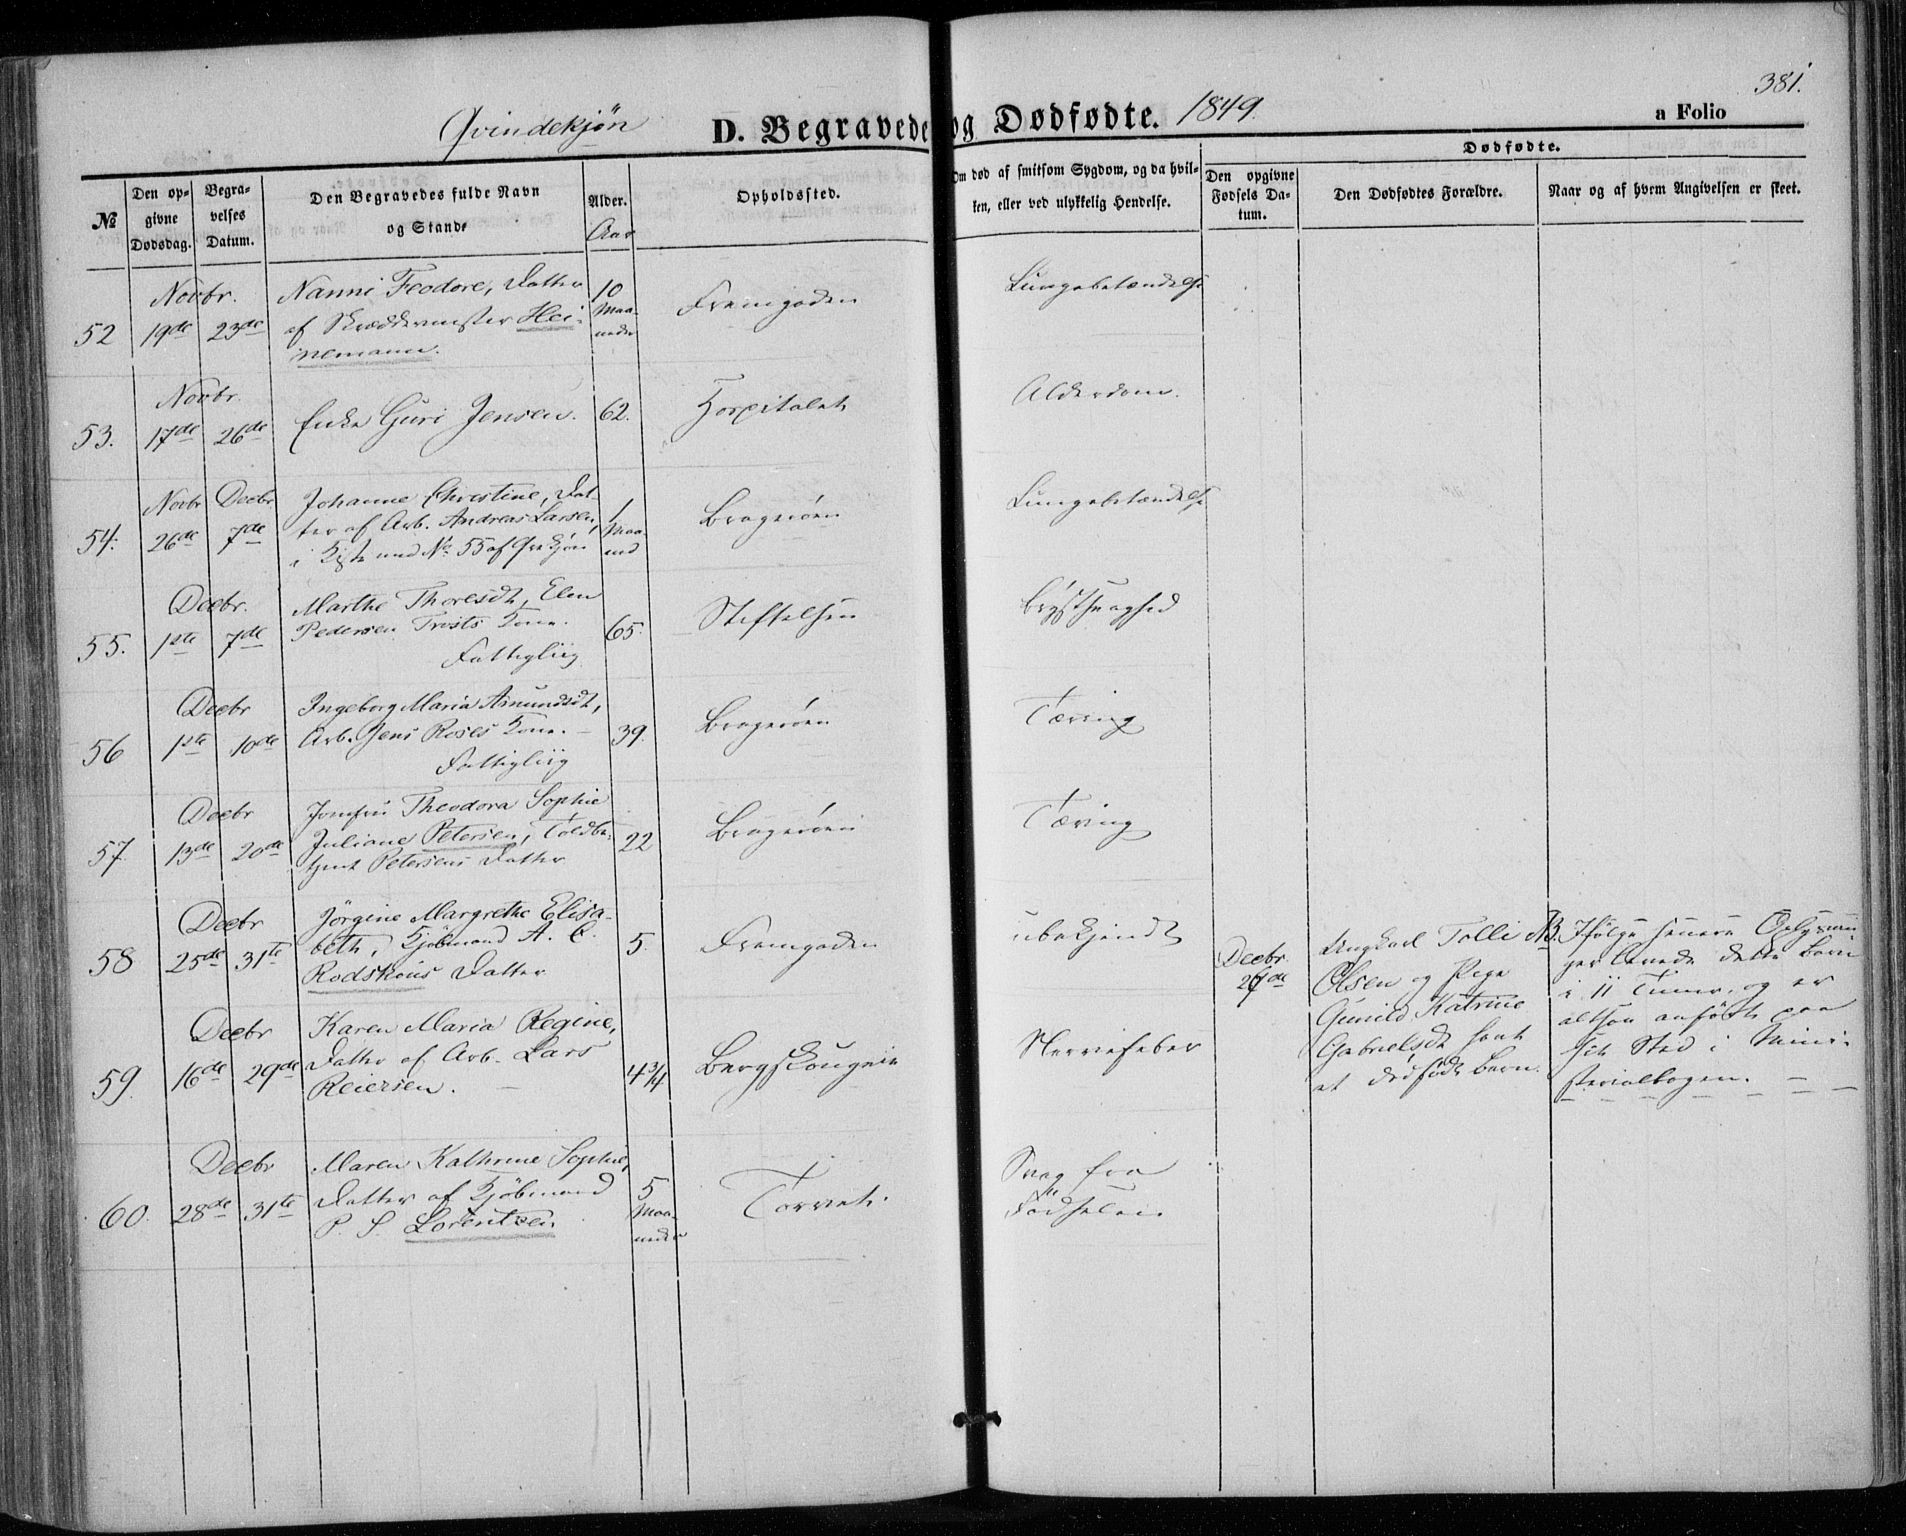 381.
Qvindekjøn D. Begravede og Dødfødte. 1849. a Folio
№
Den opgivne Dødsdag.
Begravelses Datum.
Den Begravedes fulde Navn og Stand.
Alder.
Aar
Opholdssted.
Om død af smitsom Sygdom, og da hvilken, eller ved ulykkelig Hendelse.
Dødfødte.
Den opgivne Fødsels Datum.
Den Dødfødtes Forældre.
Naar og af hvem Angivelsen er skeet.
52 Novbr. 19de 23de
Nanni Feodore, Datter
af Skræddermester Hei-
nemann.
10 Maaneder
Fremgaden
Lungebetændelse
53. Novbr. 17de 26de
Enke Guri Jensen.
62.
Hospitalet
Alderdom.
54. Novbr 26de Decbr 7de
Johanne Christine, Dat-
ter af Arb. Andreas Larsen,
i Kiste med No 55 af Qvekjøn
1 Maaned
Bragerøen
Lungebetændelse
55. Decbr. 1ste 7de
Marthe Thoresdt, Elen
Pedersen Trosts Kone.
Fattigliig
65.
Stiftelsen
Brystsvaghed
56 Decbr 1ste 10de
Ingeborg Maria Amundsdt,
Arb. Jens Roses Kone. –
Fattigliig
39.
Bragerøen
Tæring
57. Decbr 13de 20de
Jomfru Theodora Sophie
Juliane Petersen, Toldbe-
tjent Petersens Datter
22
Bragerøen
Tæring
58 Decbr 25de 31te
Jörgine Margrethe Elisa-
beth, Kjöbmand A. C.
Rodskous Datter
5.
Fremgaden
ubekjendt
Decbr.
Ungkarl Tolli
Olsen og Pige
Gunild Katrine
Gabrielsdt havt
et dødfødt Barn.
NB. Ifølge senere Oplysnin-
ger levede dette Barn
i 11 Timer, og er
altsaa anført paa
sit Sted i Mini-
sterialbogen. – – –
59. Decbr 16de 29de
Karen Maria Regine,
Datter af Arb. Lars
Reiersen. –
4 3/4
Bergskougene
Nervefeber
60. Decbr 28de 31te
Maren Kathrine Sophie,
Datter af Kjöbmand
P. S. Lorentzen
5 Maaneder
Torvet.
Svag fra
Fødselen